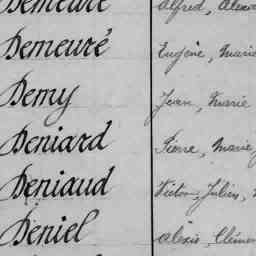 Demeuré Alfred,
Demeuré Eugène, Marie
Demy Jean, Marie
Deniard Pierre, Marie
Deniaud Victor, Julien,
Deniel Alexis, Clémen